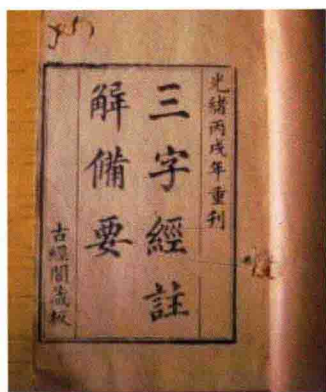 光緒丙戌年重刊
三字經註
解備要
古經閣藏板